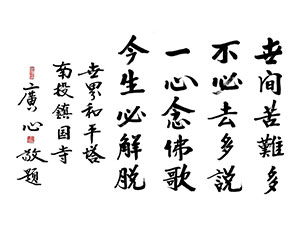 世间苦難多
不必去多說
一心念佛歌
今生必解脱
世界和平塔
南投鎮国寺
廣心敬題